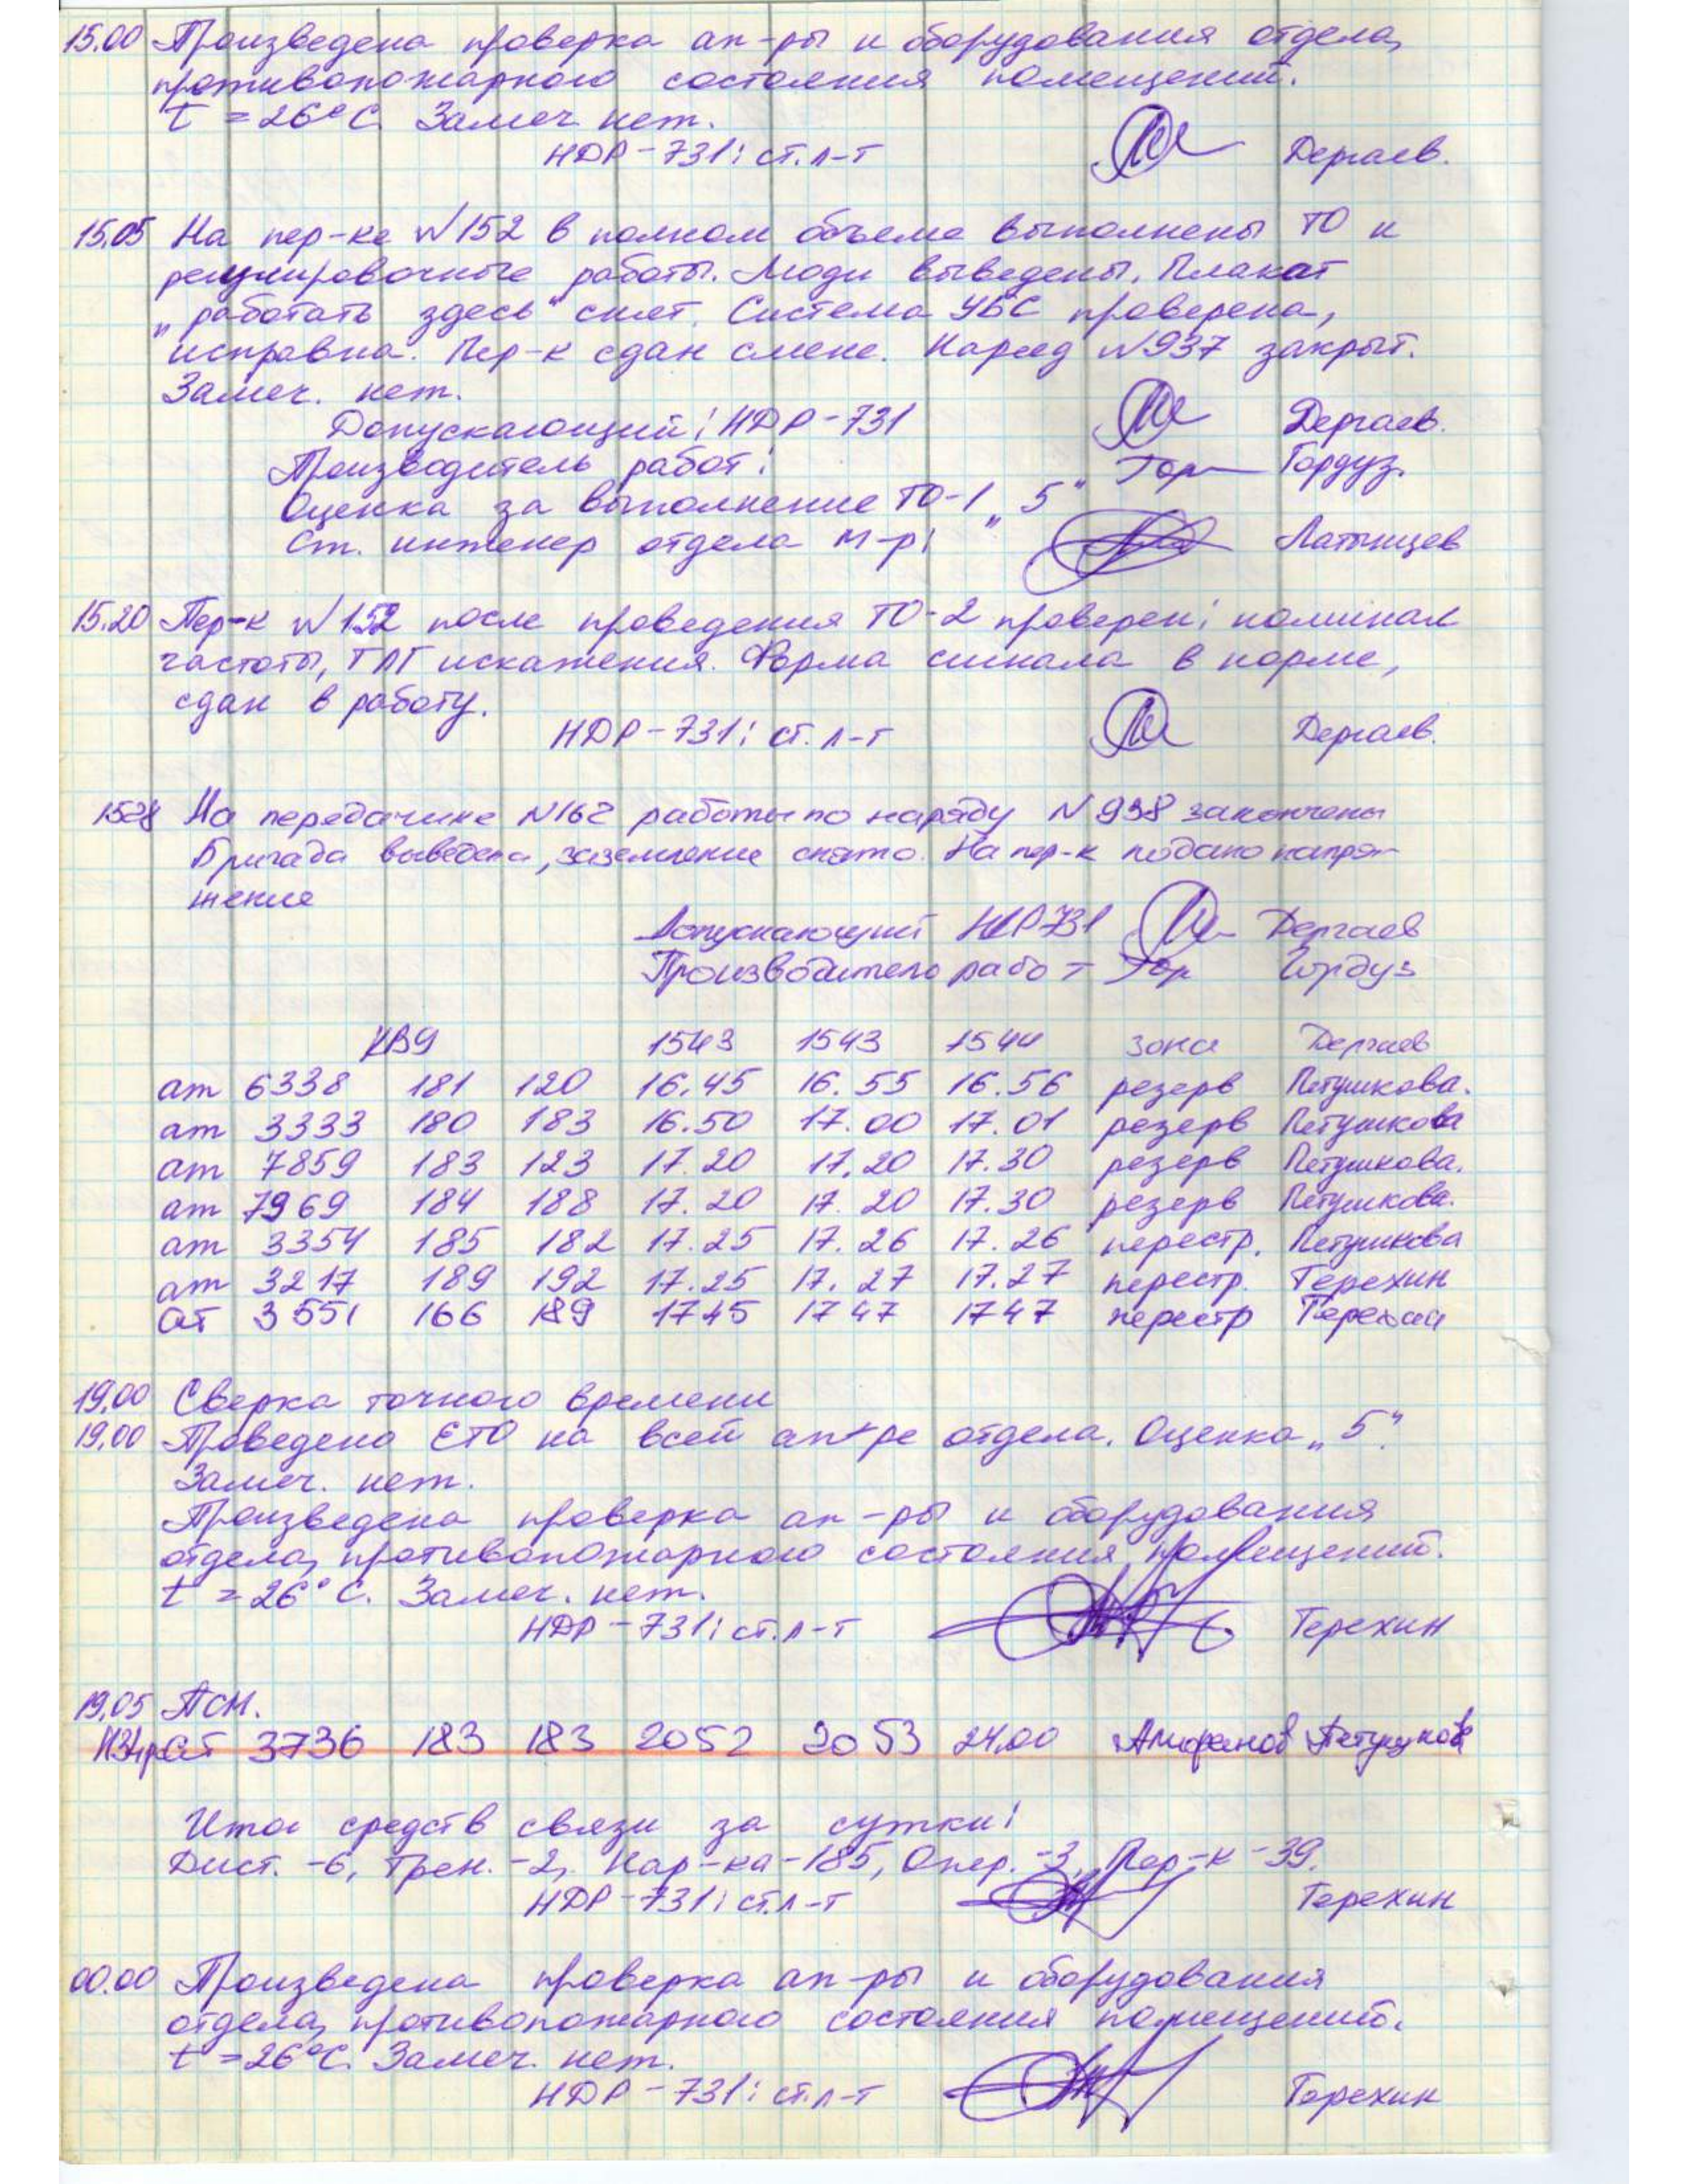 15.00 Произведена проверка ап-ры и оборудования отдела,
противопожарного состояния помещений.
t = 26°C. Замеч. нет.
НДР-731: ст. л-т Дергаев.
15.05 На пер-ке №152 в полном объеме выполнены ТО и
регулировочные работы. Люди выведены. Плакат
„работать здесь" снят. Система УБС проверена,
исправна. Пер-к сдан смене. Наряд №937 закрыт.
Замеч. нет.
Допускающий: НДР-731 Дергаев.
Производитель работ: Гор Гордуз.
Оценка за выполнение ТО-1 „5"
Ст. инженер отдела м-р: Латынцев
15.20 Пер-к №152 после проведения ТО-2 проверен: номинал
частоты, ТЛГ искажения. Форма сигнала в норме,
сдан в работу.
НДР-731: ст. л-т Дергаев.
1528 На передатчике №162 работы по наряду №938 закончены
Бригада выведена, заземление снято. На пер-к подано напря-
жение
Допускающий НДР731 Дергаев
Производитель работ Гор Гордуз
1543 1543 1544 зона Дергаев
ат 6338 181 120 16.45 16.55 16.56 резерв Петушкова.
ат 3333 180 183 16.50 17.00 17.01 резерв Петушкова
ат 7859 183 123 17.20 17.20 17.30 резерв Петушкова.
ат 7969 184 188 17.20 17.20 17.30 резерв Петушкова.
ат 3354 185 182 17.25 17.26 17.26 перестр. Петушкова
ат 3217 189 192 17.25 17.27 17.27 перестр. Терехин
ат 3551 166 189 1745 1747 1747 перестр Терехин
19.00 Сверка точного времени
19.00 Проведено ЕТО на всей ап-ре отдела. Оценка „5".
Замеч. нет.
Произведена проверка ап-ры и оборудования
отдела, противопожарного состояния помещений.
t = 26°C. Замеч. нет.
НДР-731: ст. л-т Терехин
19.05 ПСМ.
ат 3736 183 183 2052 2053 24.00
Итог средств связи за сутки:
Дист. -6, Трен. -2, Кар-ка-185, Опер. -3, Пер-к -39.
НДР-731: ст. л-т Терехин
00.00 Произведена проверка ап-ры и оборудования
отдела, противопожарного состояния помещений.
t = 26°C. Замеч. нет.
НДР-731: ст. л-т Терехин